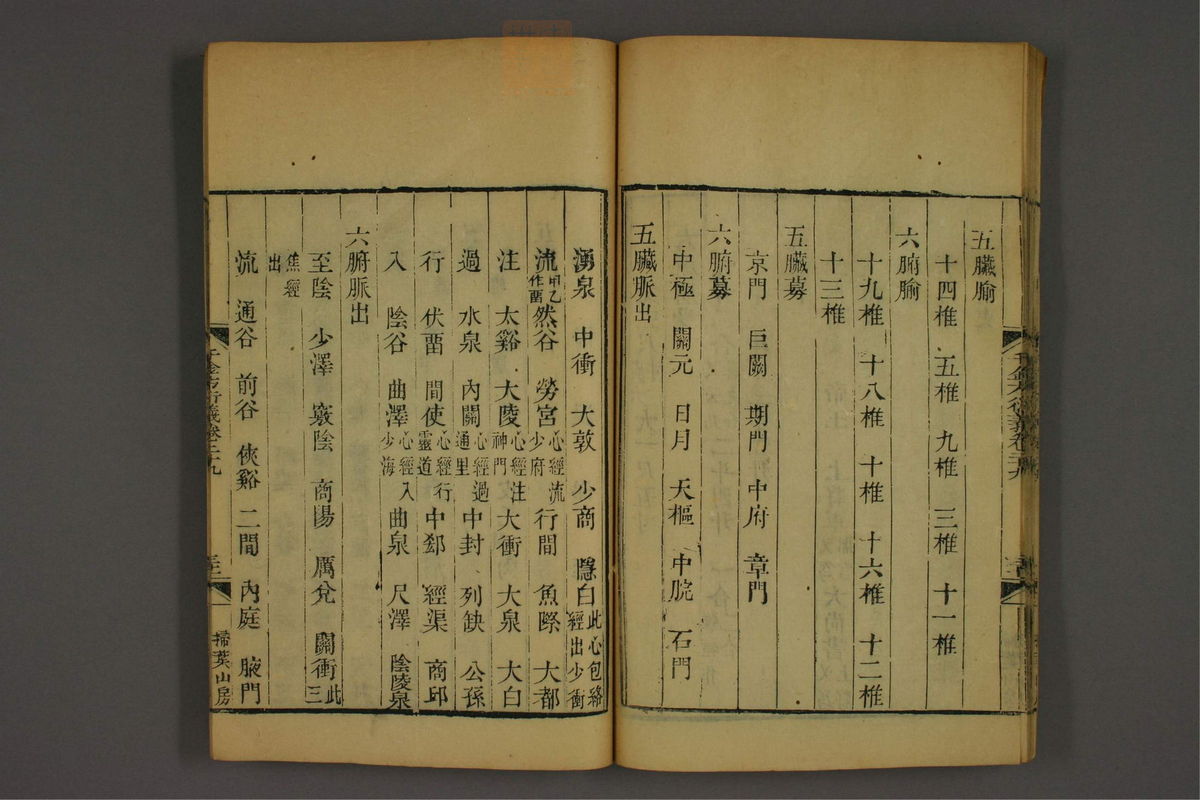 五臟腧
十四椎 五椎 九椎 三椎 十一椎
六腑腧
十九椎 十八椎 十椎 十六椎 十二椎
十三椎
五臟募
京門 巨闕 期門 中府 章門
六腑募
中極 關元 日月 天樞 中脘 石門
五臟脈出
湧泉 中衝 大敦 少商 隱白此心包絡經出少衝
流甲乙作畱然谷 勞宮心經流少府 行間 魚際 大都
注 太谿 大陵心經注神門 大衝 大泉 大白
過 水泉 內關心經過通里 中封 列缺 公孫
行 伏畱 間使心經行靈道 中郄 經渠 商邱
入 陰谷 曲澤心經入少海 曲泉 尺澤 陰陵泉
六腑脈出
至陰 少澤 竅陰 商陽 厲兌 關衝此三
焦經出
流 通谷 前谷 俠谿 二間 內庭 腋門
千金方衍義卷二十九
掃葉山房